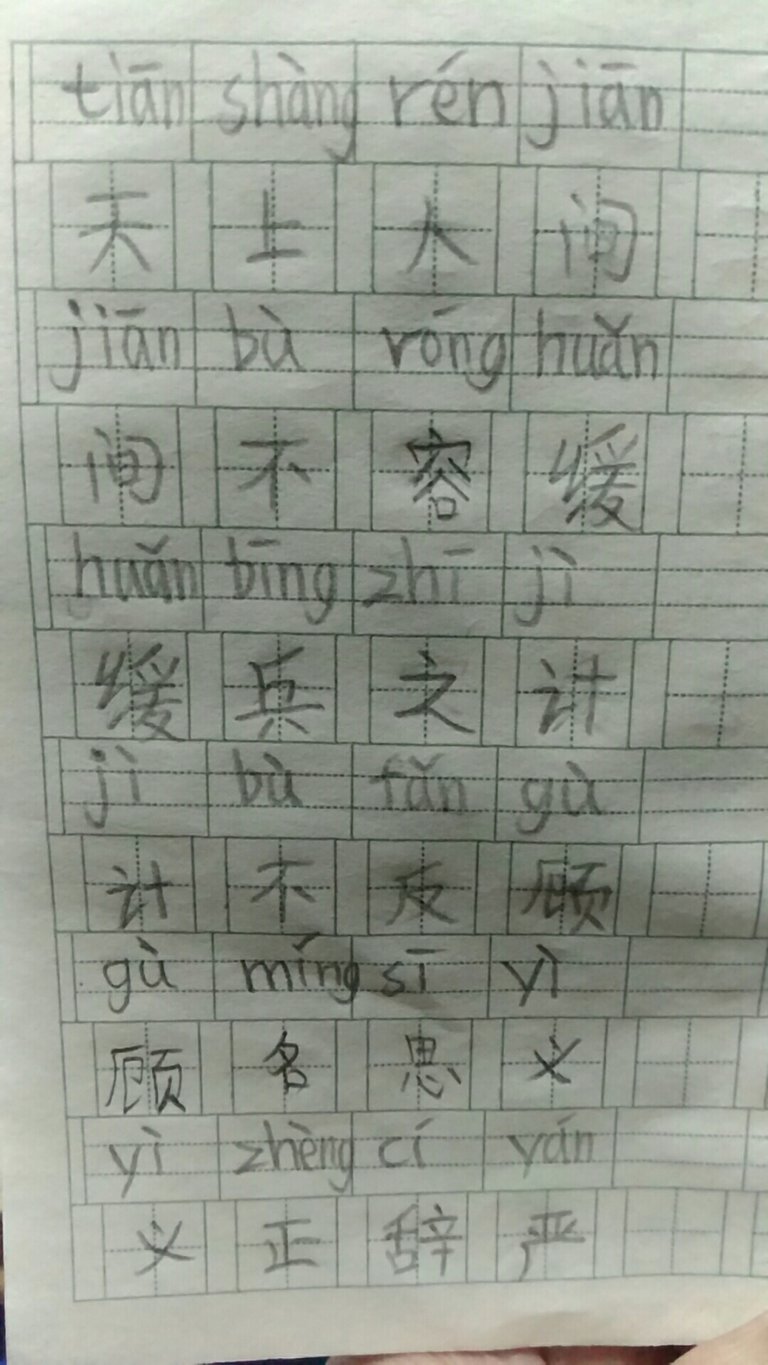 tiān shàng rén jiān
天上人间
jiān bù róng huǎn
间不容缓
huǎn bīng zhī jì
缓兵之计
jì bù fǎn gù
计不反顾
gù míng sī yì
顾名思义
yì zhèng cí yán
义正辞严